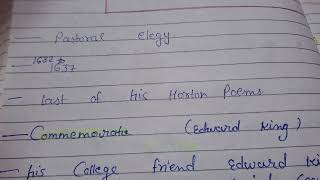 — Pastoral elegy
— 1632 to 1637
— last of his Horton Poems
— Commemorate (Edward King)
— his College friend Edward Ki